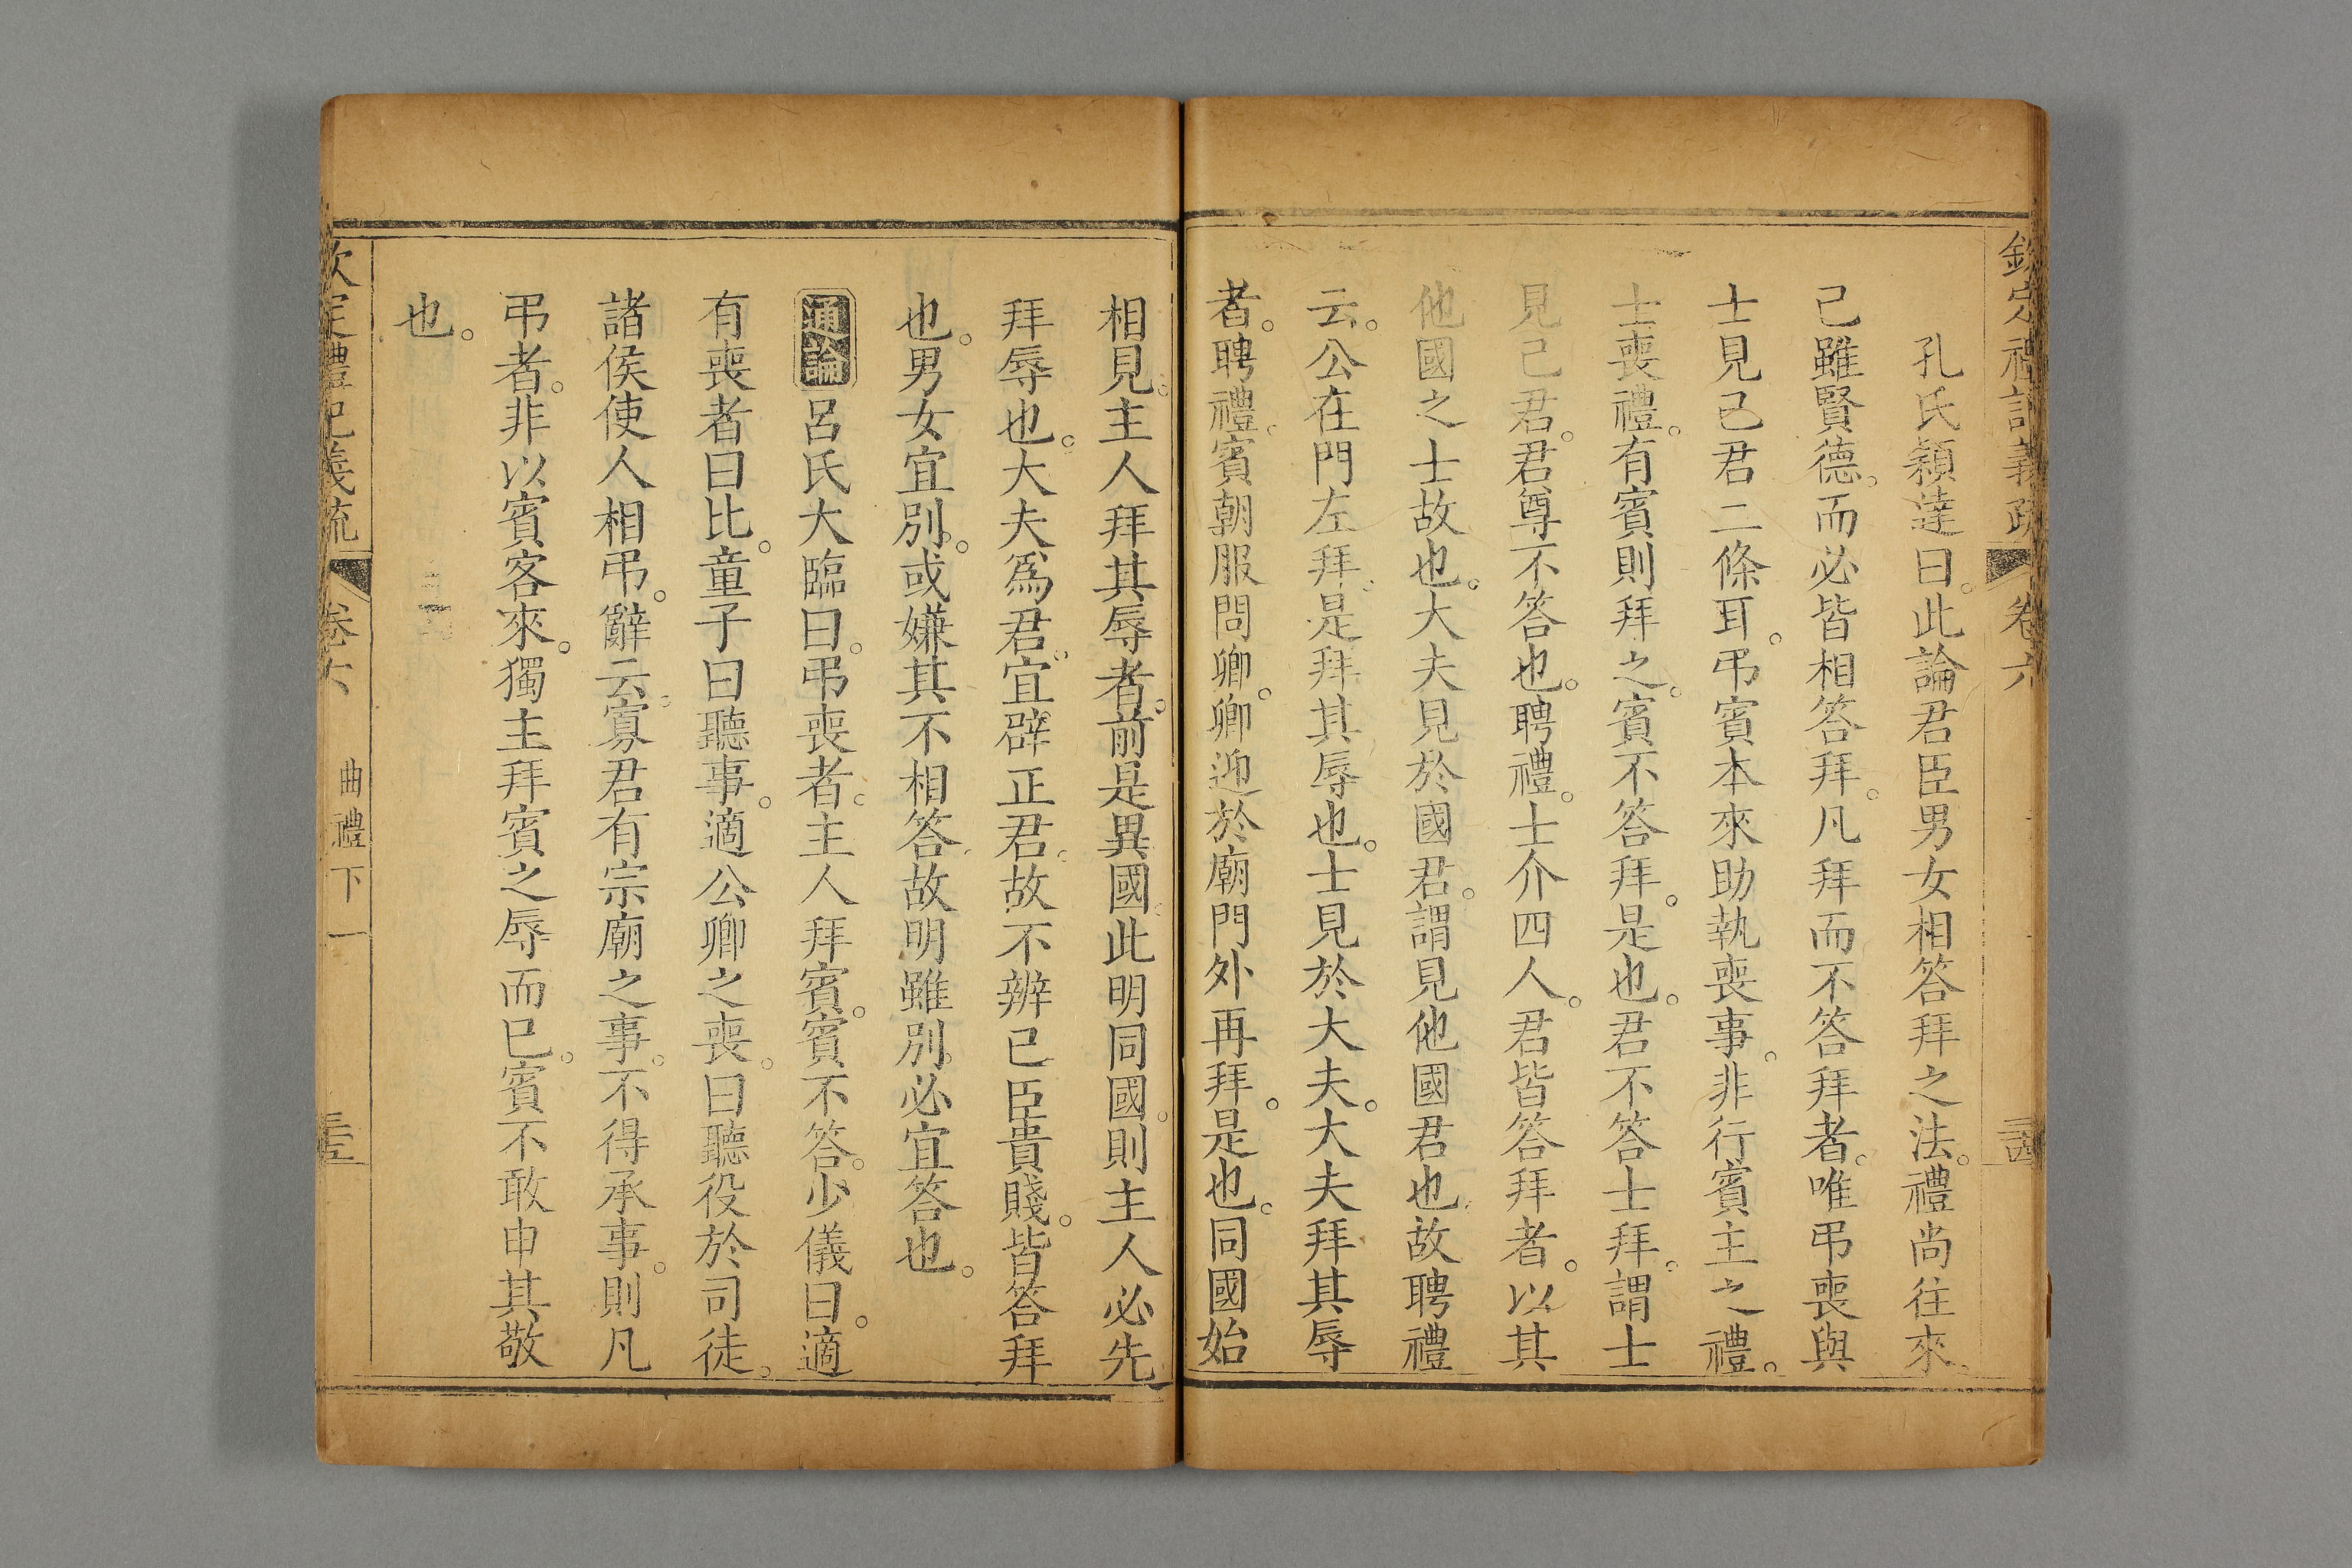 欽定禮記義疏 卷六 三四
孔氏穎達曰。此論君臣男女相答拜之法。禮尚往來。
己雖賢德。而必皆相答拜。凡拜而不答拜者。唯弔喪與
士見己君二條耳。弔賓本來助執喪事。非行賓主之禮。
士喪禮。有賓則拜之。賓不答拜。是也。君不答士拜。謂士
見己君。君尊不答也。聘禮。士介四人。君皆答拜者。以其
他國之士故也。大夫見於國君。謂見他國君也。故聘禮
云。公在門左拜。是拜其辱也。士見於大夫。大夫拜其辱
者。聘禮。賓朝服問卿。卿迎於廟門外再拜。是也。同國始
相見。主人拜其辱者。前是異國。此明同國。則主人必先
拜辱也。大夫爲君。宜辟正君。故不辨己臣貴賤。皆答拜
也。男女宜別。或嫌其不相答。故明雖別。必宜答也。
通論 呂氏大臨曰。弔喪者。主人拜賓。賓不答。少儀曰。適
有喪者曰比。童子曰聽事。適公卿之喪。曰聽役於司徒。
諸侯使人相弔。辭云。寡君有宗廟之事。不得承事。則凡
弔者。非以賓客來。獨主拜賓之辱而已。賓不敢申其敬
也。
欽定禮記義疏 卷六 曲禮下 三五